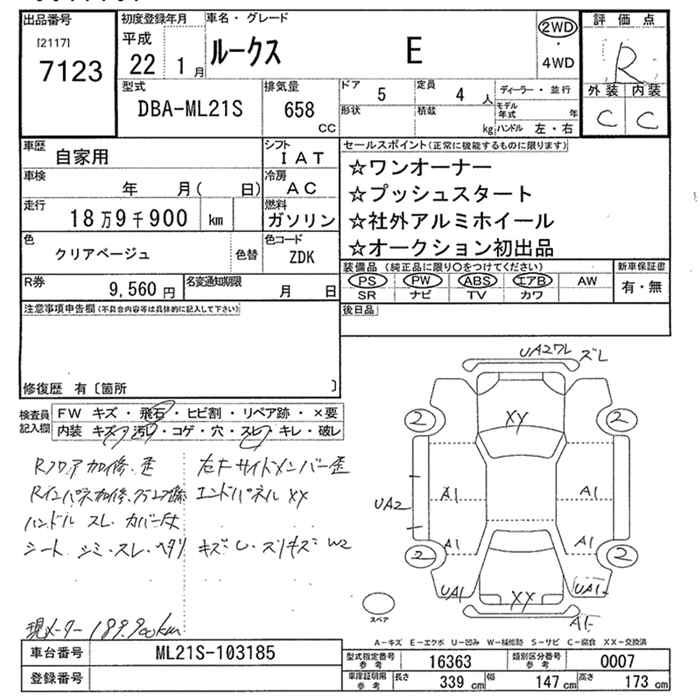 出品番号
[2117]
7123
初度登録年月
平成
22 1 月
車名・グレード
ルークス E
2WD
・
4WD
評価点
R
外装 内装
C C
型式
DBA-ML21S
排気量
658
CC
ドア 5
定員 4 人
ディーラー・並行
形状
積載
kg
モデル年式 年
ハンドル 左・右
車歴
自家用
シフト
IAT
車検
年 月( 日)
冷房
AC
走行
18万9千900 km
燃料
ガソリン
色
クリアベージュ
色替
色コード
ZDK
R券
9,560 円
名変通知期限
月 日
セールスポイント(正常に機能するものに限ります)
☆ワンオーナー
☆プッシュスタート
☆社外アルミホイール
☆オークション初出品
装備品 (純正品に限り○をつけてください)
PS PW ABS エアB AW
SR ナビ TV カワ
新車保証書
有・無
後日品
注意事項申告欄(不具合内容等は具体的に記入して下さい)
修復歴 有〔箇所 〕
検査員記入欄
FW キズ・飛石・ヒビ割・リペア跡・×要
内装 キズ・汚レ・コゲ・穴・スレ・キレ・破レ
Rフロア加修、歪
左Fサイドメンバー歪
エンドパネル XX
ハンドル スレ、カバー欠
シート シミ・スレ・ヘタリ
キズ・U・スリキズ・W2
現メーター 189,900km
UA2ワレ ズレ
XY
2 2
UA2 A1 A1
A1 A1
2 2
UA1 XX UA1
A1
スペア
A-キズ E-エクボ U-凹み W-補修跡 S-サビ C-腐食 XX-交換済
車台番号
ML21S-103185
登録番号
型式指定番号 参考
16363
類別区分番号 参考
0007
車庫証明用 参考
長さ 339 cm
幅 147 cm
高さ 173 cm